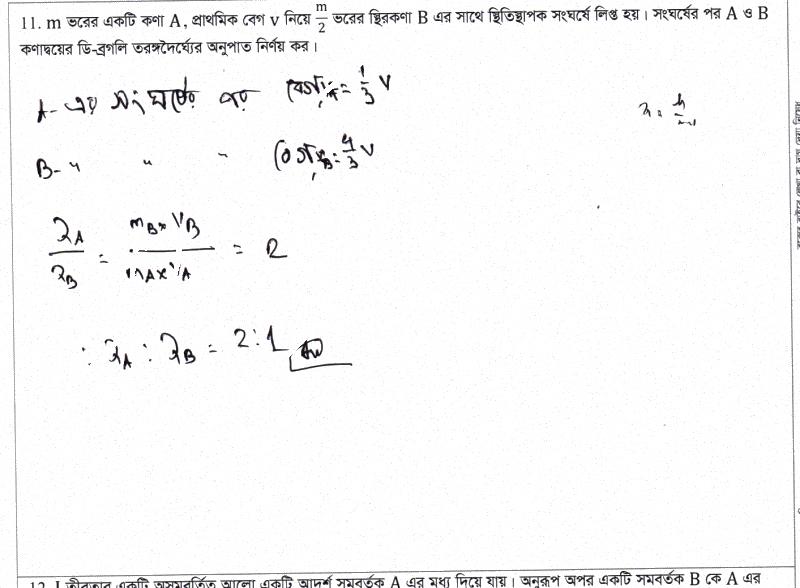 11. m ভরের একটি কণা A, প্রাথমিক বেগ v নিয়ে m/2 ভরের স্থিরকণা B এর সাথে স্থিতিস্থাপক সংঘর্ষে লিপ্ত হয়। সংঘর্ষের পর A ও B
কণাদ্বয়ের ডি-ব্রগলি তরঙ্গদৈর্ঘ্যের অনুপাত নির্ণয় কর।
A- এর সংঘর্ষের পর বেগ, = 1/3 V
λ = h/mv
B- " " " বেগ, = 4/3 V
λA/λB = mB× VB / mA× VA = 2
∴ λA : λB = 2:1 Ans
12. I তীব্রতার একটি অসমবর্তিত আলো একটি আদর্শ সমবর্তক A এর মধ্য দিয়ে যায়। অনুরূপ অপর একটি সমবর্তক B কে A এর